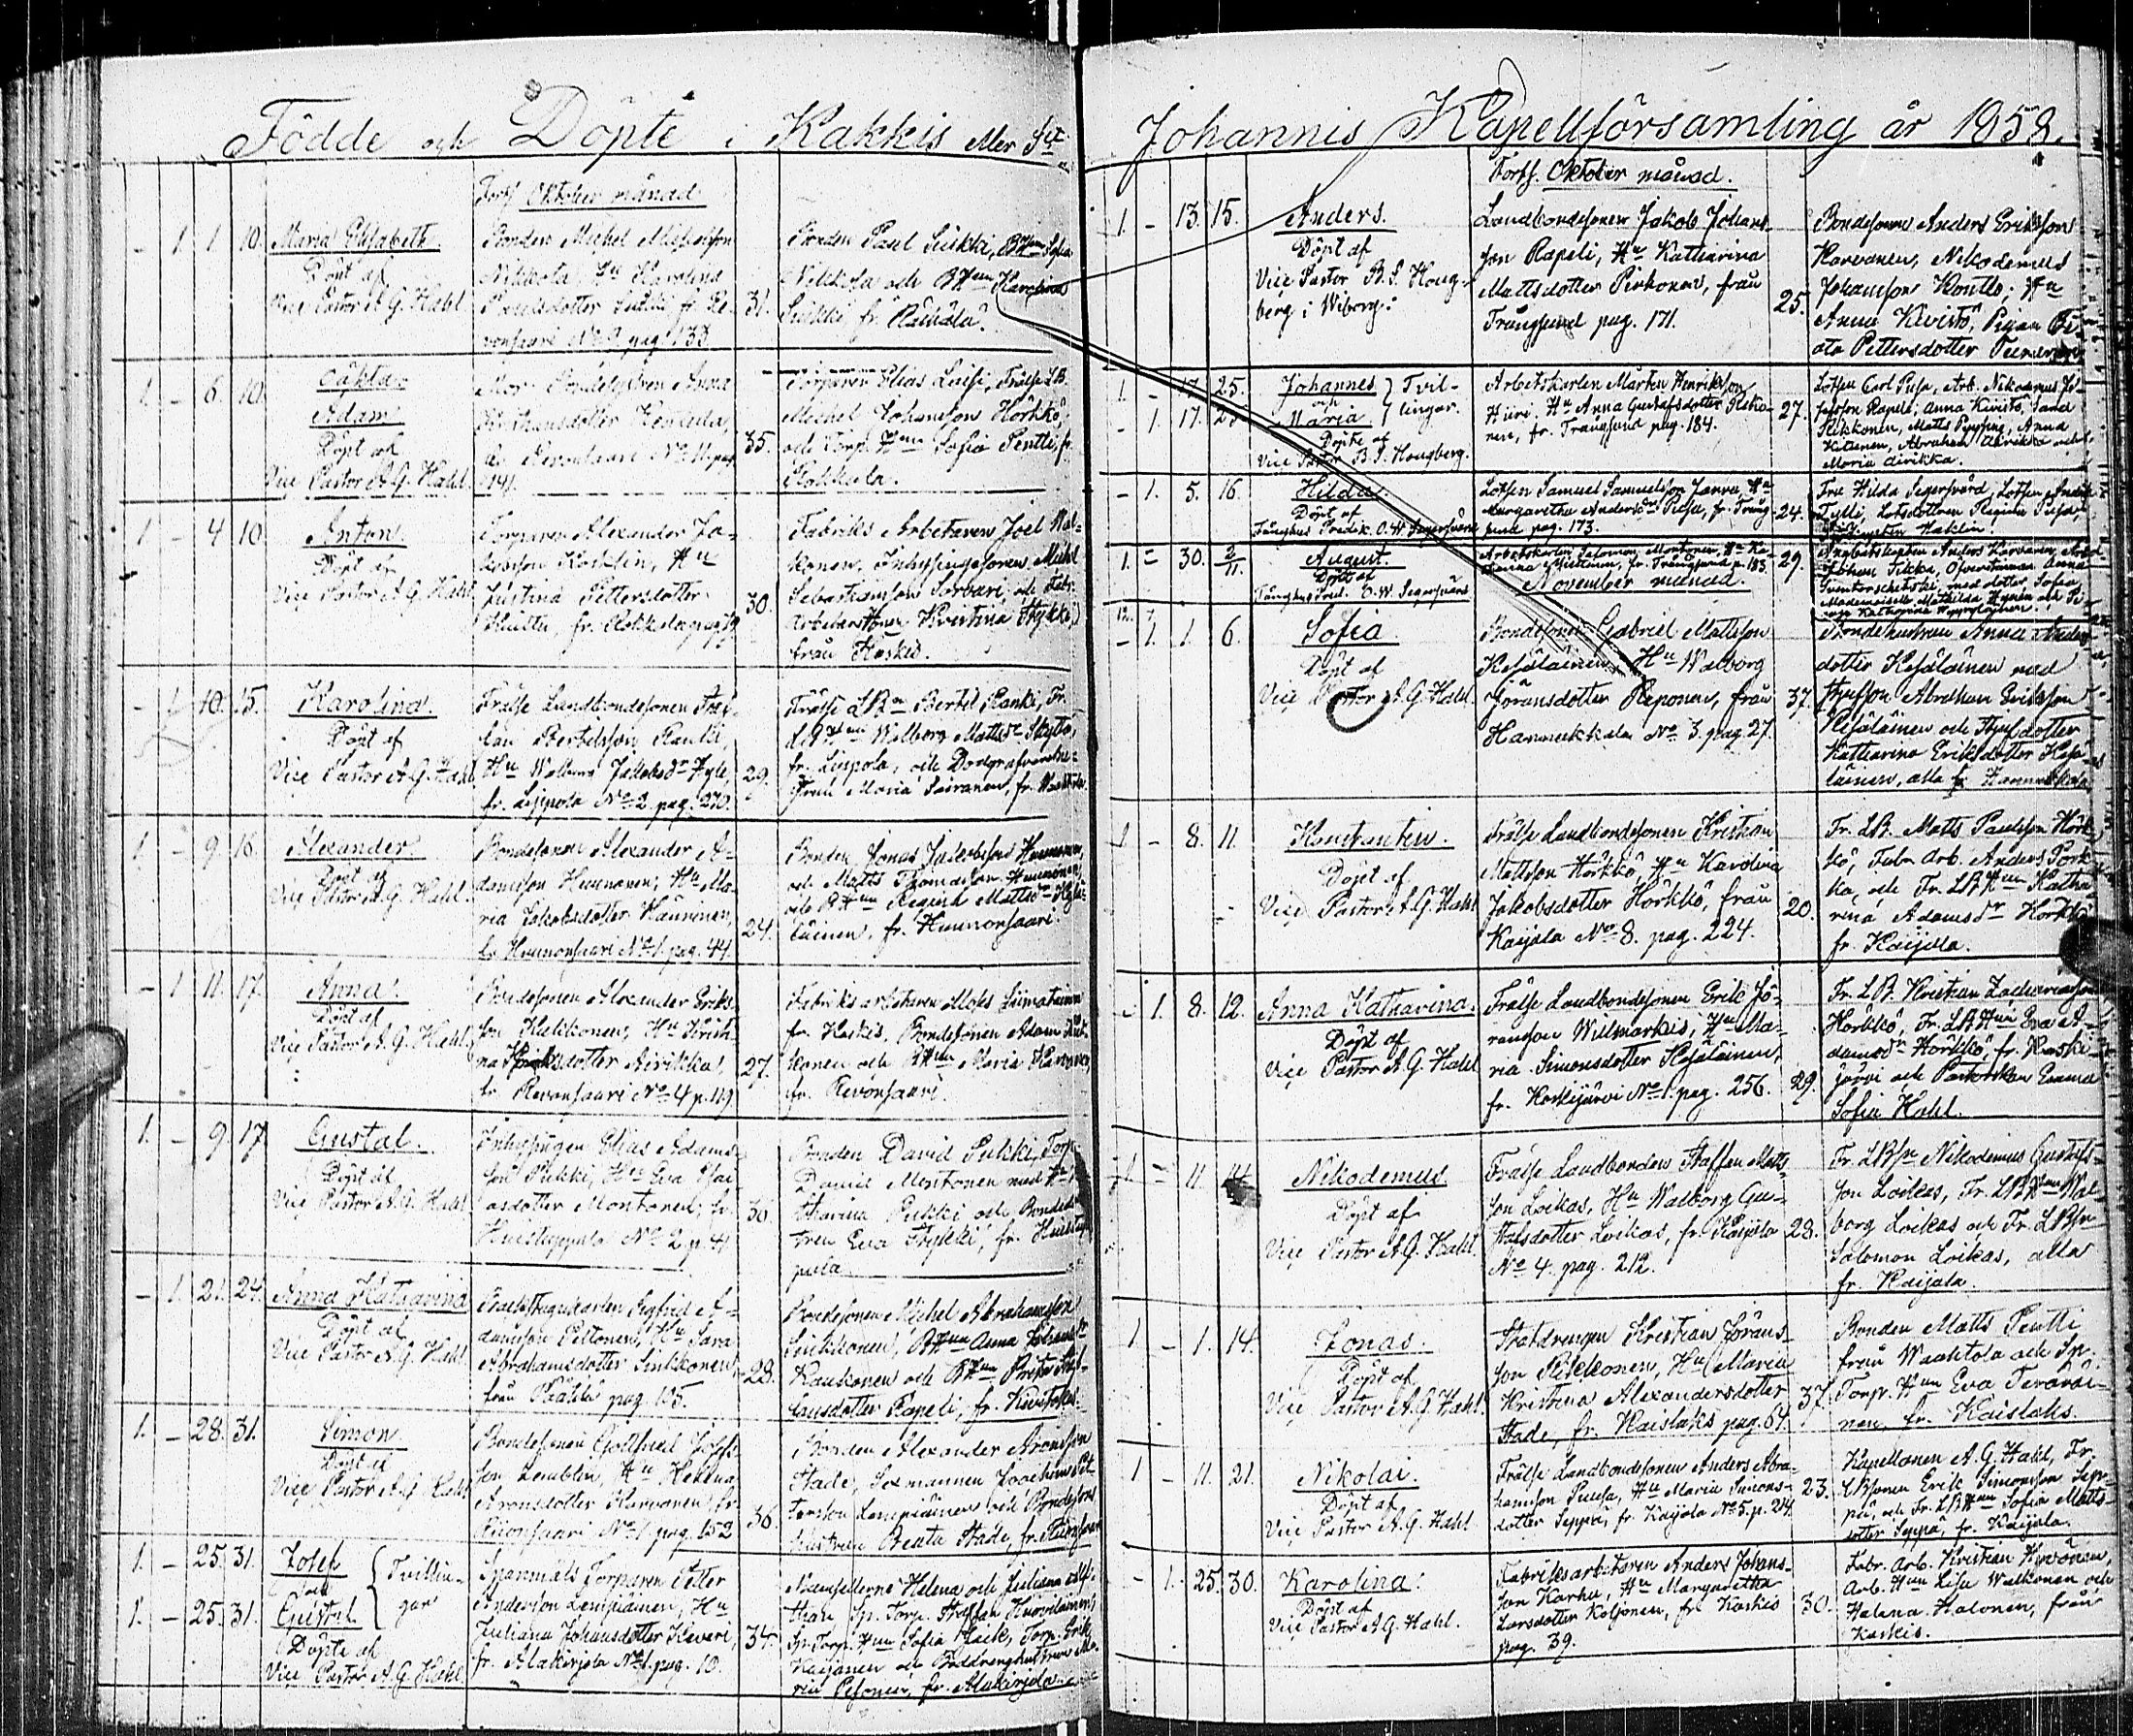 Födde och Döpte i Kakkis eller St
Forts. Oktober månad
1. 1. 10. Maria Elisabeth.
Döpt af
Vice Pastor A G. Hahl
Bonden Michel
Nikkola, Hu Karolina
Paulsdotter Sukki fr. Re-
vonsaari No 9 pag. 133.
31.
Bonden Paul Sukki, BHun Sofia
Nikkola och BHun Karolina
Sukki fr.
1. 6. 10. Oäkta
Adam
Döpt af
Vice Pastor A G. Hahl.
Anna
fr. Revonsaari No 11. pag
141.
35.
Torparen Elias Laisi, Frälse LB.
Michel Johansson Hörkkö,
och Torp. Hun Sofia Pentti, fr.
Rokkala.
1. 4. 10. Anton
Döpt af
Vice Pastor A G. Hahl
Torparen Alexander Ja-
kobsson Hu
Justina Pettersdotter
fr. Rokkala pag 19
30.
Fabriks Arbetaren Joel Wal-
konen, Inhysingesonen Michel
Sebastiansson Sorvari, och Fabr.
Arbetar Hun Kristina Thykki,
från Kaskis.
1. 10. 15. Karolina.
Döpt af
Vice Pastor A G. Hahl
Frälse Landbondesonen
Bertelsson
Hu Walborg Jakobsdr
fr. Leppola No 2. pag. 270.
29.
Frälse LBn Bertel Fr.
Walborg Mattsdr Skyttä,
fr. Leppola, och
Fru Maria Sairanen, fr.
1. 9. 16. Alexander.
Döpt af
Vice Pastor A G. Hahl.
Bondesonen Alexander A-
damsson Humonen; Hu Ma-
ria Jakobsdotter Hänninen,
fr. Huunonsaari No 1. pag. 44.
24.
Bonden Jonas Jakobsson
och Matts Thomasson
och BHun Regina Mattsdr
fr. Huunonsaari.
1. 11. 17. Anna.
Döpt af
Vice Pastor A G. Hahl
Bondesonen Alexander Eriks-
son Kukkonen, Hu Kristi-
na Airikka,
fr. Revonsaari No 4 p. 119
27.
Fabriks arbetaren Moses
fr. Kaskis, Bondesonen Adam
konen och BHun Maria Karvonen,
fr. Revonsaari.
1. 9. 17. Gustaf.
Döpt af
Vice Pastor A G. Hahl
Inhysingen Elias Adams-
son Pukki, Hu Eva
asdotter Montonen, fr.
No 2. p. 41
30.
Bonden David Sukki, Torp.
David Montonen med
tharina Pukki och
Eva Thykki, fr.
1. 21. 24. Anna Katharina
Döpt af
Vice Pastor A G. Hahl
Sigfrid A-
damsson Peltonen, Hu Sara
Abrahamsdotter Sinkkonen
från pag 105.
28.
Bondesonen Michel Abrahamsson
Sinkkonen, BHun Anna
Kaukonen och BHun
dotter Rapeli, fr.
1. 28. 31. Simon
Döpt af
Vice Pastor A G Hahl
Bondesonen Gottfried
Hu Helena
Aronsdotter Karvonen fr.
No 1. pag. 152
36.
Bonden Alexander Aronsson
Stade, Joachim Pet-
tersson Lempiäinen och Bondesons
hustrun Beata Stade, fr.
1. 25. 31. Josef
och
1. 25. 31. Gustaf.
Tvillin-
gar
Döpte af
Vice Pastor A G. Hahl
Spannmåls Torparen Petter
Andersson Lempiäinen, Hu
Juliana Johansdotter Kaveri,
fr. Alakirjola No 1. pag. 10.
34.
Mamsellerne Helena och Juliana
than Sp. Torp. Staffan
Sp. Torp. Hun Sofia Torp. Erik
och
ria Pesonen, fr. Alakirjola.
Johannis Kapellförsamling år 1858.
Forts. Oktober månad.
1. 13. 15. Anders.
Döpt af
Vice Pastor B. S. Houg-
berg i Wiborg.
Landbondesonen Jakob Johans-
son Rapeli, Hu Katharina
Mattsdotter Pirkonen, från
Trångsund pag. 171.
25.
Bondesonen Anders Eriksson
Karvonen, Nikodemus
Johansson Kontto; Hu
Anna Kivistö, Pigan Be-
ata Pettersdotter
1. 17. 25. Johannes
och
1. 17. 25. Maria
Tvil-
lingar.
Döpte af
Vice Pastor B. S. Hougberg.
Arbetskarlen Mårten Henriksson
Hu Anna Gustafsdotter
nen, fr. Trångsund pag. 184.
27.
Lotsen Carl Pusa, Arb. Nikodemus
Rapeli, Anna Kivistö,
Sikkonen, Matts Anna
Abraham Airikka och
Maria Airikka.
1. 5. 16. Hilda.
Döpt af
Fånghus Predik. O. W. Segersvärd
Lotsen Samuel Samuelsson Hu
Margaretha Andersdr Pusa, fr. Trång-
sund pag. 173.
24.
Fru Hilda Segersvärd, Lotsen
Lotsdottren Regina Pusa,
1. 30. 2/11. August.
Döpt af
Fånghus Pred. O. W. Segersvärd
Arbetskarlen Salomon Montonen, Hu
fr. Trångsund p. 183
29.
Anders Karvonen,
Johan Anna
med dotter Sofia,
Mademoiselle Mathilda
Katharina
November månad.
1. 1. 6. Sofia
Döpt af
Vice Pastor A. G. Hahl.
Bondesonen Gabriel Mattsson
Kesäläinen, Hu Walborg
Göransdotter Reponen, från
Hannukkala No 3. pag. 27.
37.
Bondehustrun Anna Anders-
dotter Kesäläinen med
Abraham Eriksson
Kesäläinen och
Katharina Eriksdotter Kesä-
läinen, alla fr. Hannukkala
1. 8. 11. Konstantin.
Döpt af
Vice Pastor A G. Hahl
Frälse Landbondesonen Kristian
Mattsson Hörkkö, Hu Karolina
Jakobsdotter Hörkkö, från
Kaijala No 8. pag. 224.
20.
Fr. LB. Matts Paulsson Hörk-
kö, Fabr. Arb. Anders Pork-
ka, och Fr. LBHun Katha-
rina Adamsdr Hörkkö
fr. Kaijala.
1. 8. 12. Anna Katharina.
Döpt af
Vice Pastor A G. Hahl
Frälse Landbondesonen Erik Jö-
ransson Willmarkis, Hu Ma-
ria Simonsdotter Kesäläinen,
fr. Koskijärvi No 1. pag. 256.
29.
Fr. LB. Kristian Zachariasson
Hörkkö, Fr. LBHun Eva A-
damsdr Hörkkö, fr. Koski-
järvi och Emma
Sofia Hahl.
1. 11. 14 Nikodemus.
Döpt af
Vice Pastor A. G. Hahl.
Frälse Landbonden Staffan Matts-
son Loikas, Hu Walborg Gu-
stafsdotter Loikas, fr. Kaijala
No 4. pag. 212.
28.
Fr. LBsn Nikodemus Gustafs-
son Loikas, Fr. LBHun Wal-
borg Loikas och Fr. LBsn
Salomon Loikas, alla
fr. Kaijala.
1. 1. 14. Jonas.
Döpt af
Vice Pastor A. G. Hahl.
Statdrengen Kristian Jörans-
son Hu Maria
Kristina Alexandersdotter
Stade, fr. Kaislaks pag. 64.
37.
Bonden Matts Pentti
från Waahtola och Sp.
Torp. Hun Eva Teräväi-
nen, fr. Kaislaks.
1. 11. 21. Nikolai.
Döpt af
Vice Pastor A. G. Hahl
Frälse Landbondesonen Anders Abra-
hamsson Pusa, Hu Maria Simons-
dotter Seppä, fr. Kaijala No 5. p. 214
23.
Kapellanen A. G. Hahl, Fr.
LBsonen Erik Simonsson Sep-
pä, och Fr. LBHun Sofia Matts-
dotter Seppä, fr. Kaijala.
1. 25. 30. Karolina.
Döpt af
Vice Pastor A G. Hahl.
Fabriksarbetaren Anders Johans-
son Karhu, Hu Margaretha
Larsdotter Koljonen, fr. Kaskis
pag. 39.
30.
Fabr. Arb. Kristian Hyvönen,
Arb. Hun Lisa Walkonen och
Helena Halonen, från
Kaskis.